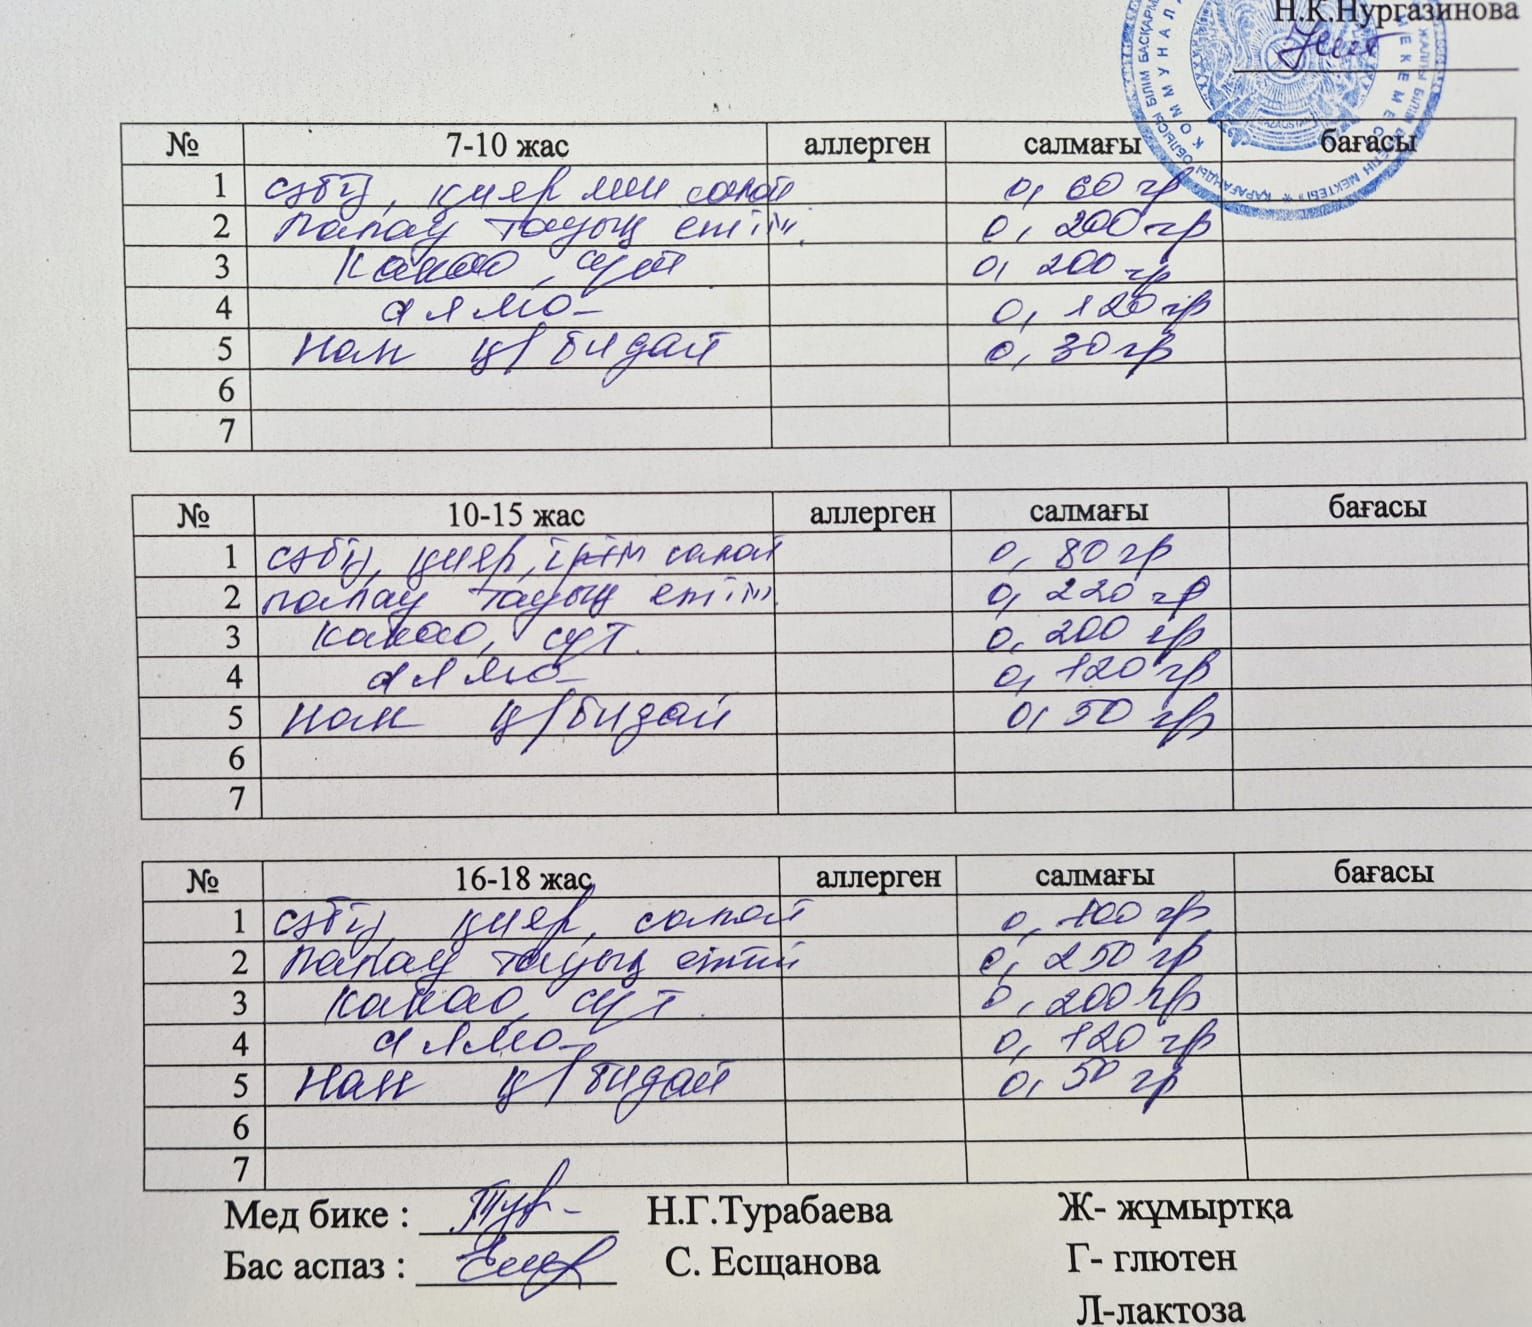 Н.К.Нургазинова
ҚАРАҒАНДЫ ОБЛЫСЫ БІЛІМ БАСҚАРМ
КОММУНАЛ
МЕКЕМЕС
ЖАЛПЫ БІЛІМ
МЕКТЕБІ
QAZAQSTAN
№ 7-10 жас аллерген салмағы бағасы
1 сәбіз, қияр салат 0, 60 гр
2 палау тауық етімен 0, 200 гр
3 какао, сүт 0, 200 гр
4 алма 0, 120 гр
5 нан қ/бидай 0, 30 гр
6
7
№ 10-15 жас аллерген салмағы бағасы
1 сәбіз, қияр, салат 0, 80 гр
2 палау тауық етімен 0, 220 гр
3 какао, сүт. 0, 200 гр
4 алма 0, 120 гр
5 нан қ/бидай 0, 50 гр
6
7
№ 16-18 жас аллерген салмағы бағасы
1 сәбіз, қияр, салат 0, 100 гр
2 палау тауық 0, 250 гр
3 какао, сүт. 0, 200 гр
4 алма 0, 120 гр
5 нан қ/бидай 0, 50 гр
6
7
Мед бике : Н.Г.Турабаева Ж- жұмыртқа
Бас аспаз : С. Есщанова Г- глютен
Л-лактоза